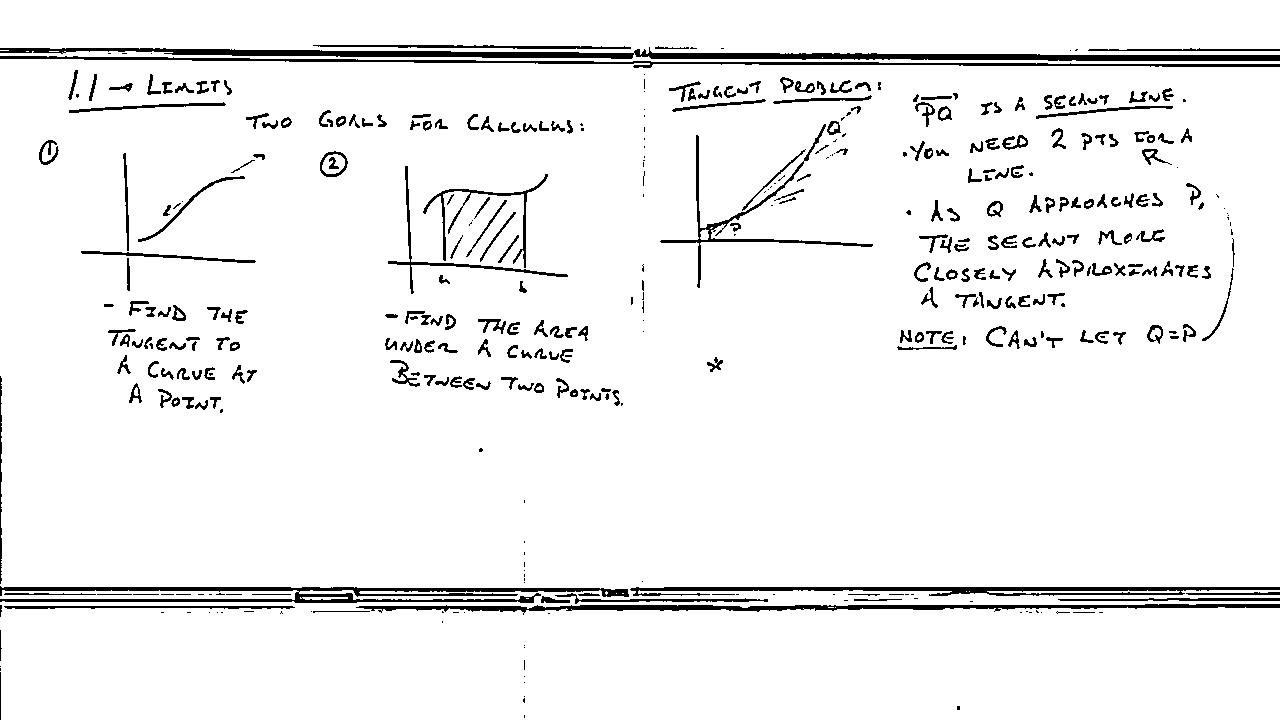 1.1 → LIMITS
TWO GOALS FOR CALCULUS:
①
- FIND THE
TANGENT TO
A CURVE AT
A POINT.
②
a b
- FIND THE AREA
UNDER A CURVE
BETWEEN TWO POINTS.
TANGENT PROBLEM:
Q
P
*
PQ IS A SECANT LINE.
• YOU NEED 2 PTS FOR A
LINE.
• AS Q APPROACHES P,
THE SECANT MORE
CLOSELY APPROXIMATES
A TANGENT.
NOTE: CAN'T LET Q=P